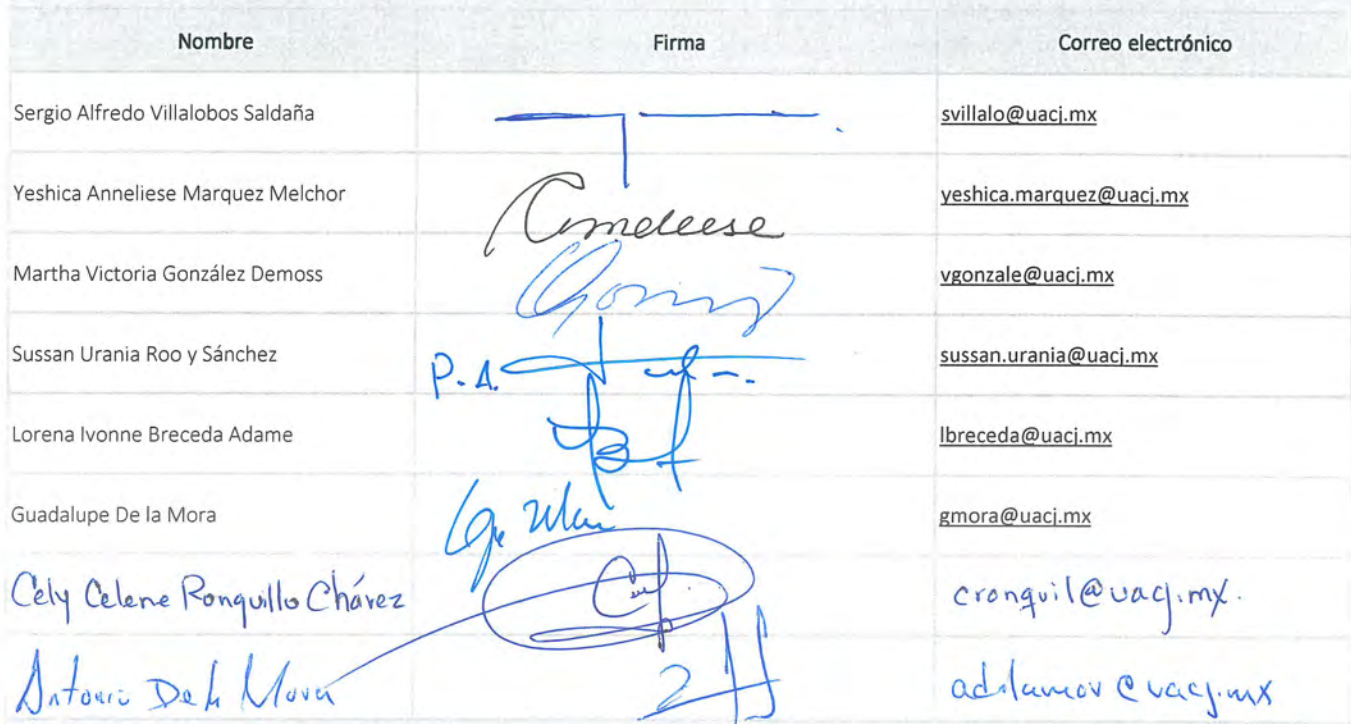 Nombre Firma Correo electrónico
Sergio Alfredo Villalobos Saldaña svillalo@uacj.mx
Yeshica Anneliese Marquez Melchor yeshica.marquez@uacj.mx
Martha Victoria González Demoss vgonzale@uacj.mx
Sussan Urania Roo y Sánchez P.A. sussan.urania@uacj.mx
Lorena Ivonne Breceda Adame lbreceda@uacj.mx
Guadalupe De la Mora gmora@uacj.mx
Cely Celene Ronquillo Chávez cronquil@uacj.mx.
Antonio De la Mora